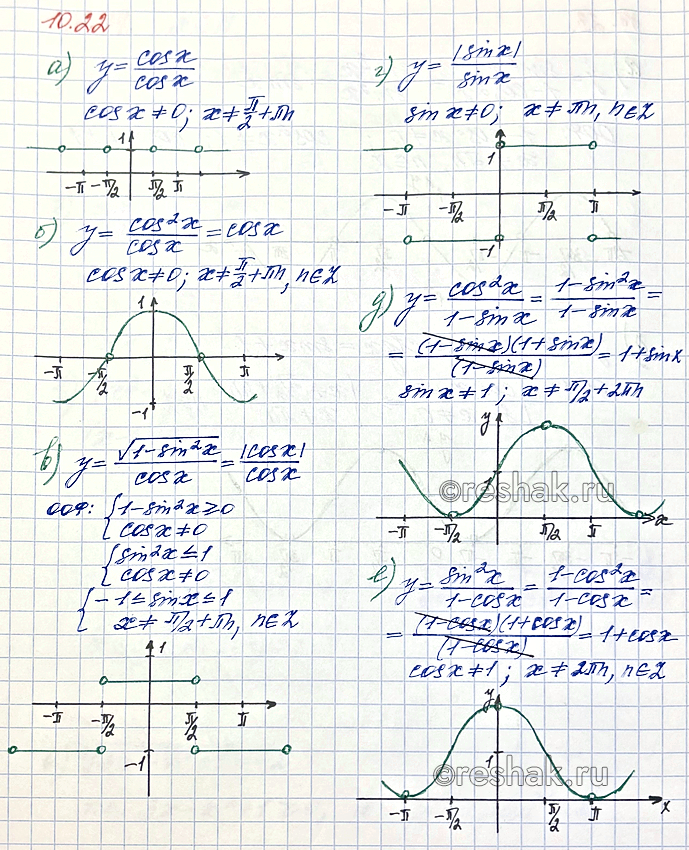 10.22
а) y = cosx/cosx
cosx ≠ 0; x ≠ π/2 + πn
1
-π -π/2 π/2 π
б) y = cos²x/cosx = cosx
cosx ≠ 0; x ≠ π/2 + πn, n∈Z
1
-π -π/2 π/2 π
-1
в) y = √(1-sin²x)/cosx = |cosx|/cosx
ООФ: { 1-sin²x ≥ 0
cosx ≠ 0
{ sin²x ≤ 1
cosx ≠ 0
{ -1 ≤ sinx ≤ 1
x ≠ π/2 + πn, n∈Z
1
-π -π/2 π/2 π
-1
г) y = |sinx|/sinx
sinx ≠ 0; x ≠ πn, n∈Z
1
-π -π/2 π/2 π
-1
д) y = cos²x/(1-sinx) = (1-sin²x)/(1-sinx) =
= (1-sinx)(1+sinx)/(1-sinx) = 1+sinx
sinx ≠ 1; x ≠ π/2 + 2πn
y
1
©reshak.ru
x
-π -π/2 π/2 π
е) y = sin²x/(1-cosx) = (1-cos²x)/(1-cosx) =
= (1-cosx)(1+cosx)/(1-cosx) = 1+cosx
cosx ≠ 1; x ≠ 2πn, n∈Z
y
1
©reshak.ru
-π -π/2 π/2 π x